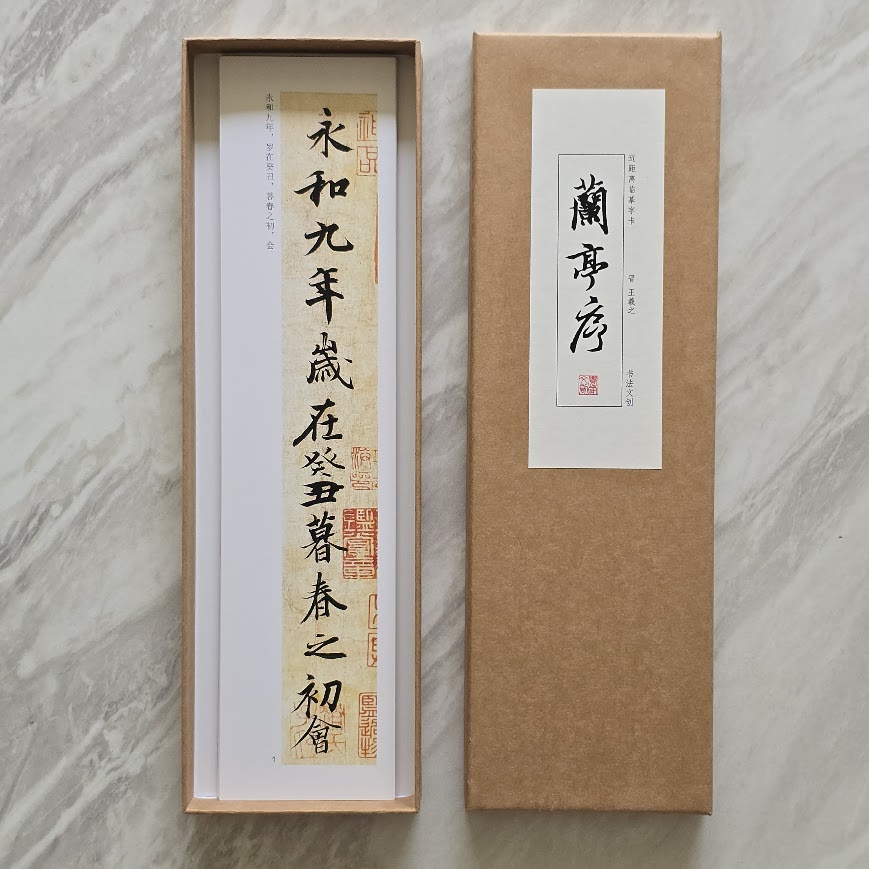 永和九年歲在癸丑暮春之初會
永和九年，岁在癸丑，暮春之初，会
1
近距离临摹字卡
晋 王羲之
书法文创
蘭亭序